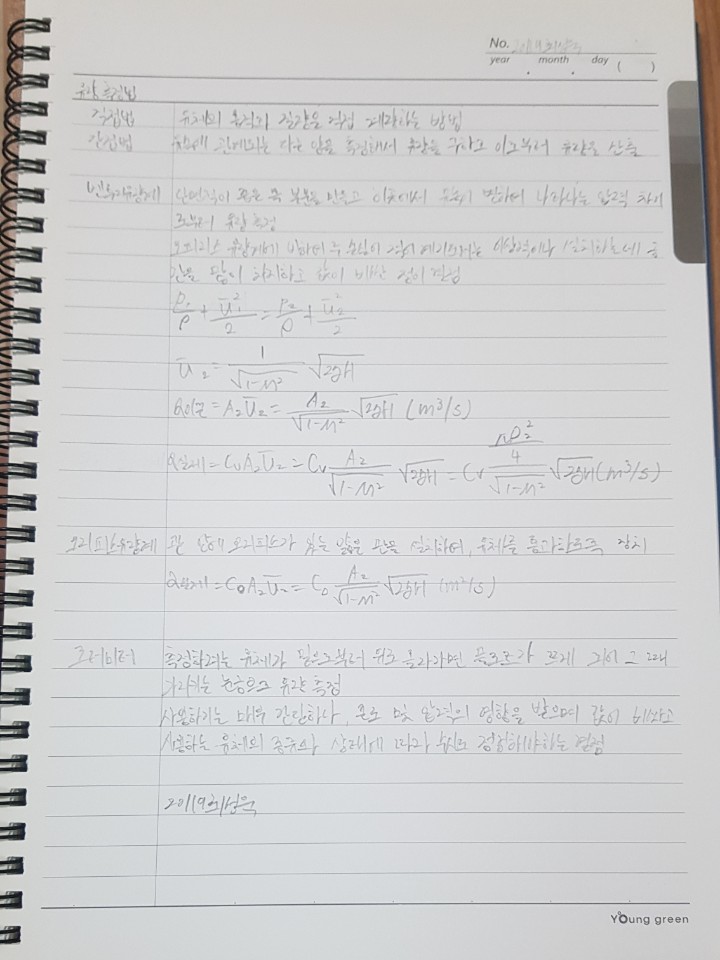 No. 2019최성욱
year . month . day ( )
유량측정법
직접법 유체의 용적가 질량을 직접 계량하는 방법
간접법 유속에 관계되는 다른 양을 측정해서 유량을 구하고 이로부터 유량을 산출
벤투리유량계 단면적이 좁은 목 부분을 만들고 이곳에서 유속이 변하며 나타나는 압력 차이
로부터 유량 측정
오리피스 유량계에 비하여 두 손실이 적어 에서는 이상적이나 설치하는데 공
간을 많이 차지하고 값이 비싼 점이 결점
P₁/ρ + ū₁²/2 = P₂/ρ + ū₂²/2
ū₂ = 1/√(1-m²) √(2gH)
Q이론 = A₂ū₂ = A₂/√(1-m²) √(2gH) (m³/s)
Q실제 = CᵥA₂ū₂ = Cᵥ A₂/√(1-m²) √(2gH) = Cᵥ (πD₂²/4)/√(1-m²) √(2gH) (m³/s)
오리피스유량계 관 안에 오리피스가 있는 얇은 판을 설치하여, 유체를 통과하도록 장치
Q실제 = C₀A₂ū₂ = C₀ A₂/√(1-m²) √(2gH) (m³/s)
로터미터 측정하려는 유체가 밑으로부터 위로 올라가면 플로트가 뜨게 되어 그 때
가리키는 눈금으로 유량 측정
사용하기는 매우 간단하나, 온도 및 압력의 영향을 받으며 값이 비싸고
사용하는 유체의 종류와 상태에 따라 수시로 정정하여야하는 결점
2019최성욱
Young green